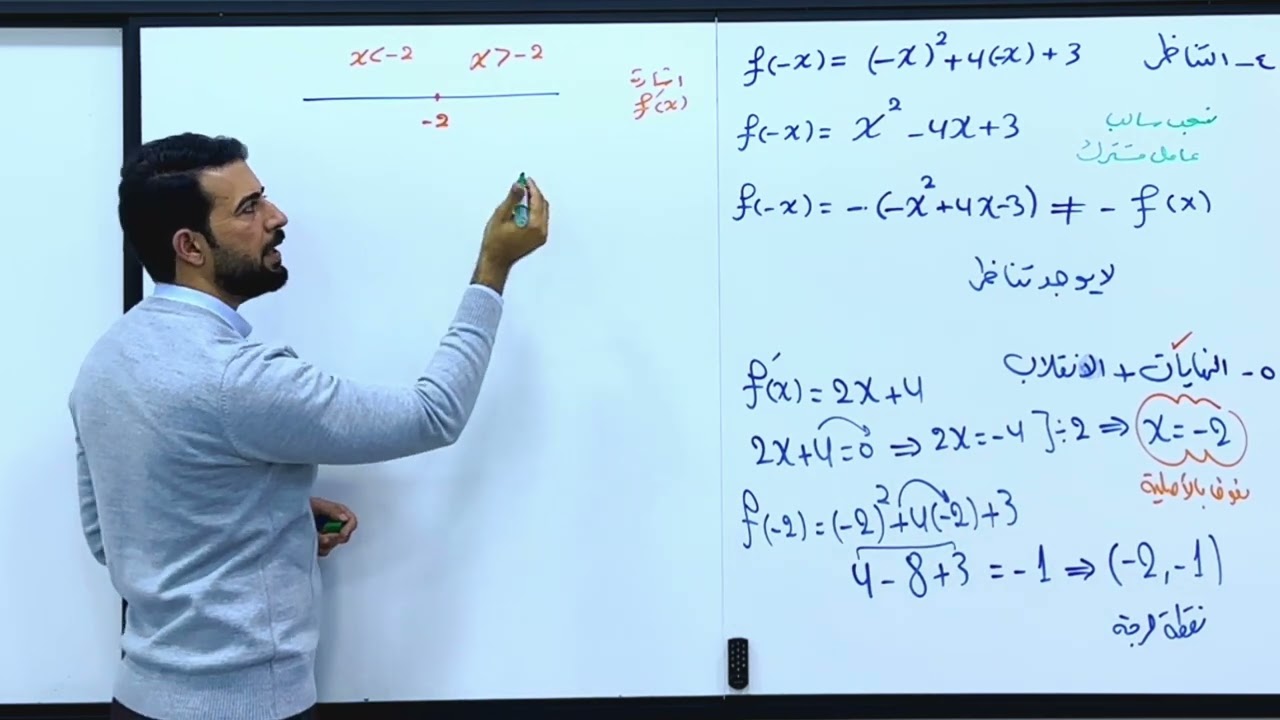 x<-2 x>-2
-2
اشارة
f′(x)
٤- التناظر
f(-x) = (-x)² + 4(-x) + 3
f(-x) = x² - 4x + 3
نسحب سالب
عامل مشترك
f(-x) = -(-x² + 4x - 3) ≠ - f(x)
لا يوجد تناظر
٥- النهايات + الانقلاب
f′(x) = 2x + 4
2x + 4 = 0 ⇒ 2x = -4 ] ÷ 2 ⇒ x = -2
نعوض بالأصلية
f(-2) = (-2)² + 4(-2) + 3
4 - 8 + 3 = -1 ⇒ (-2, -1)
نقطة حرجة